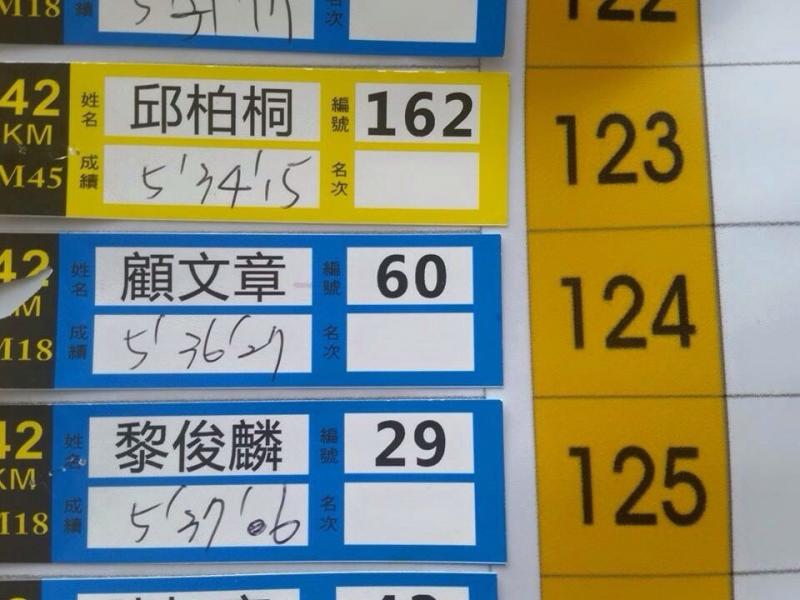 M18 成績 5'31'17 名次 122
42 KM 姓名 邱柏桐 編號 162 123
M45 成績 5'34'15 名次
42 KM 姓名 顧文章 編號 60 124
M18 成績 5'36'27 名次
42 KM 姓名 黎俊麟 編號 29 125
M18 成績 5'37'06 名次